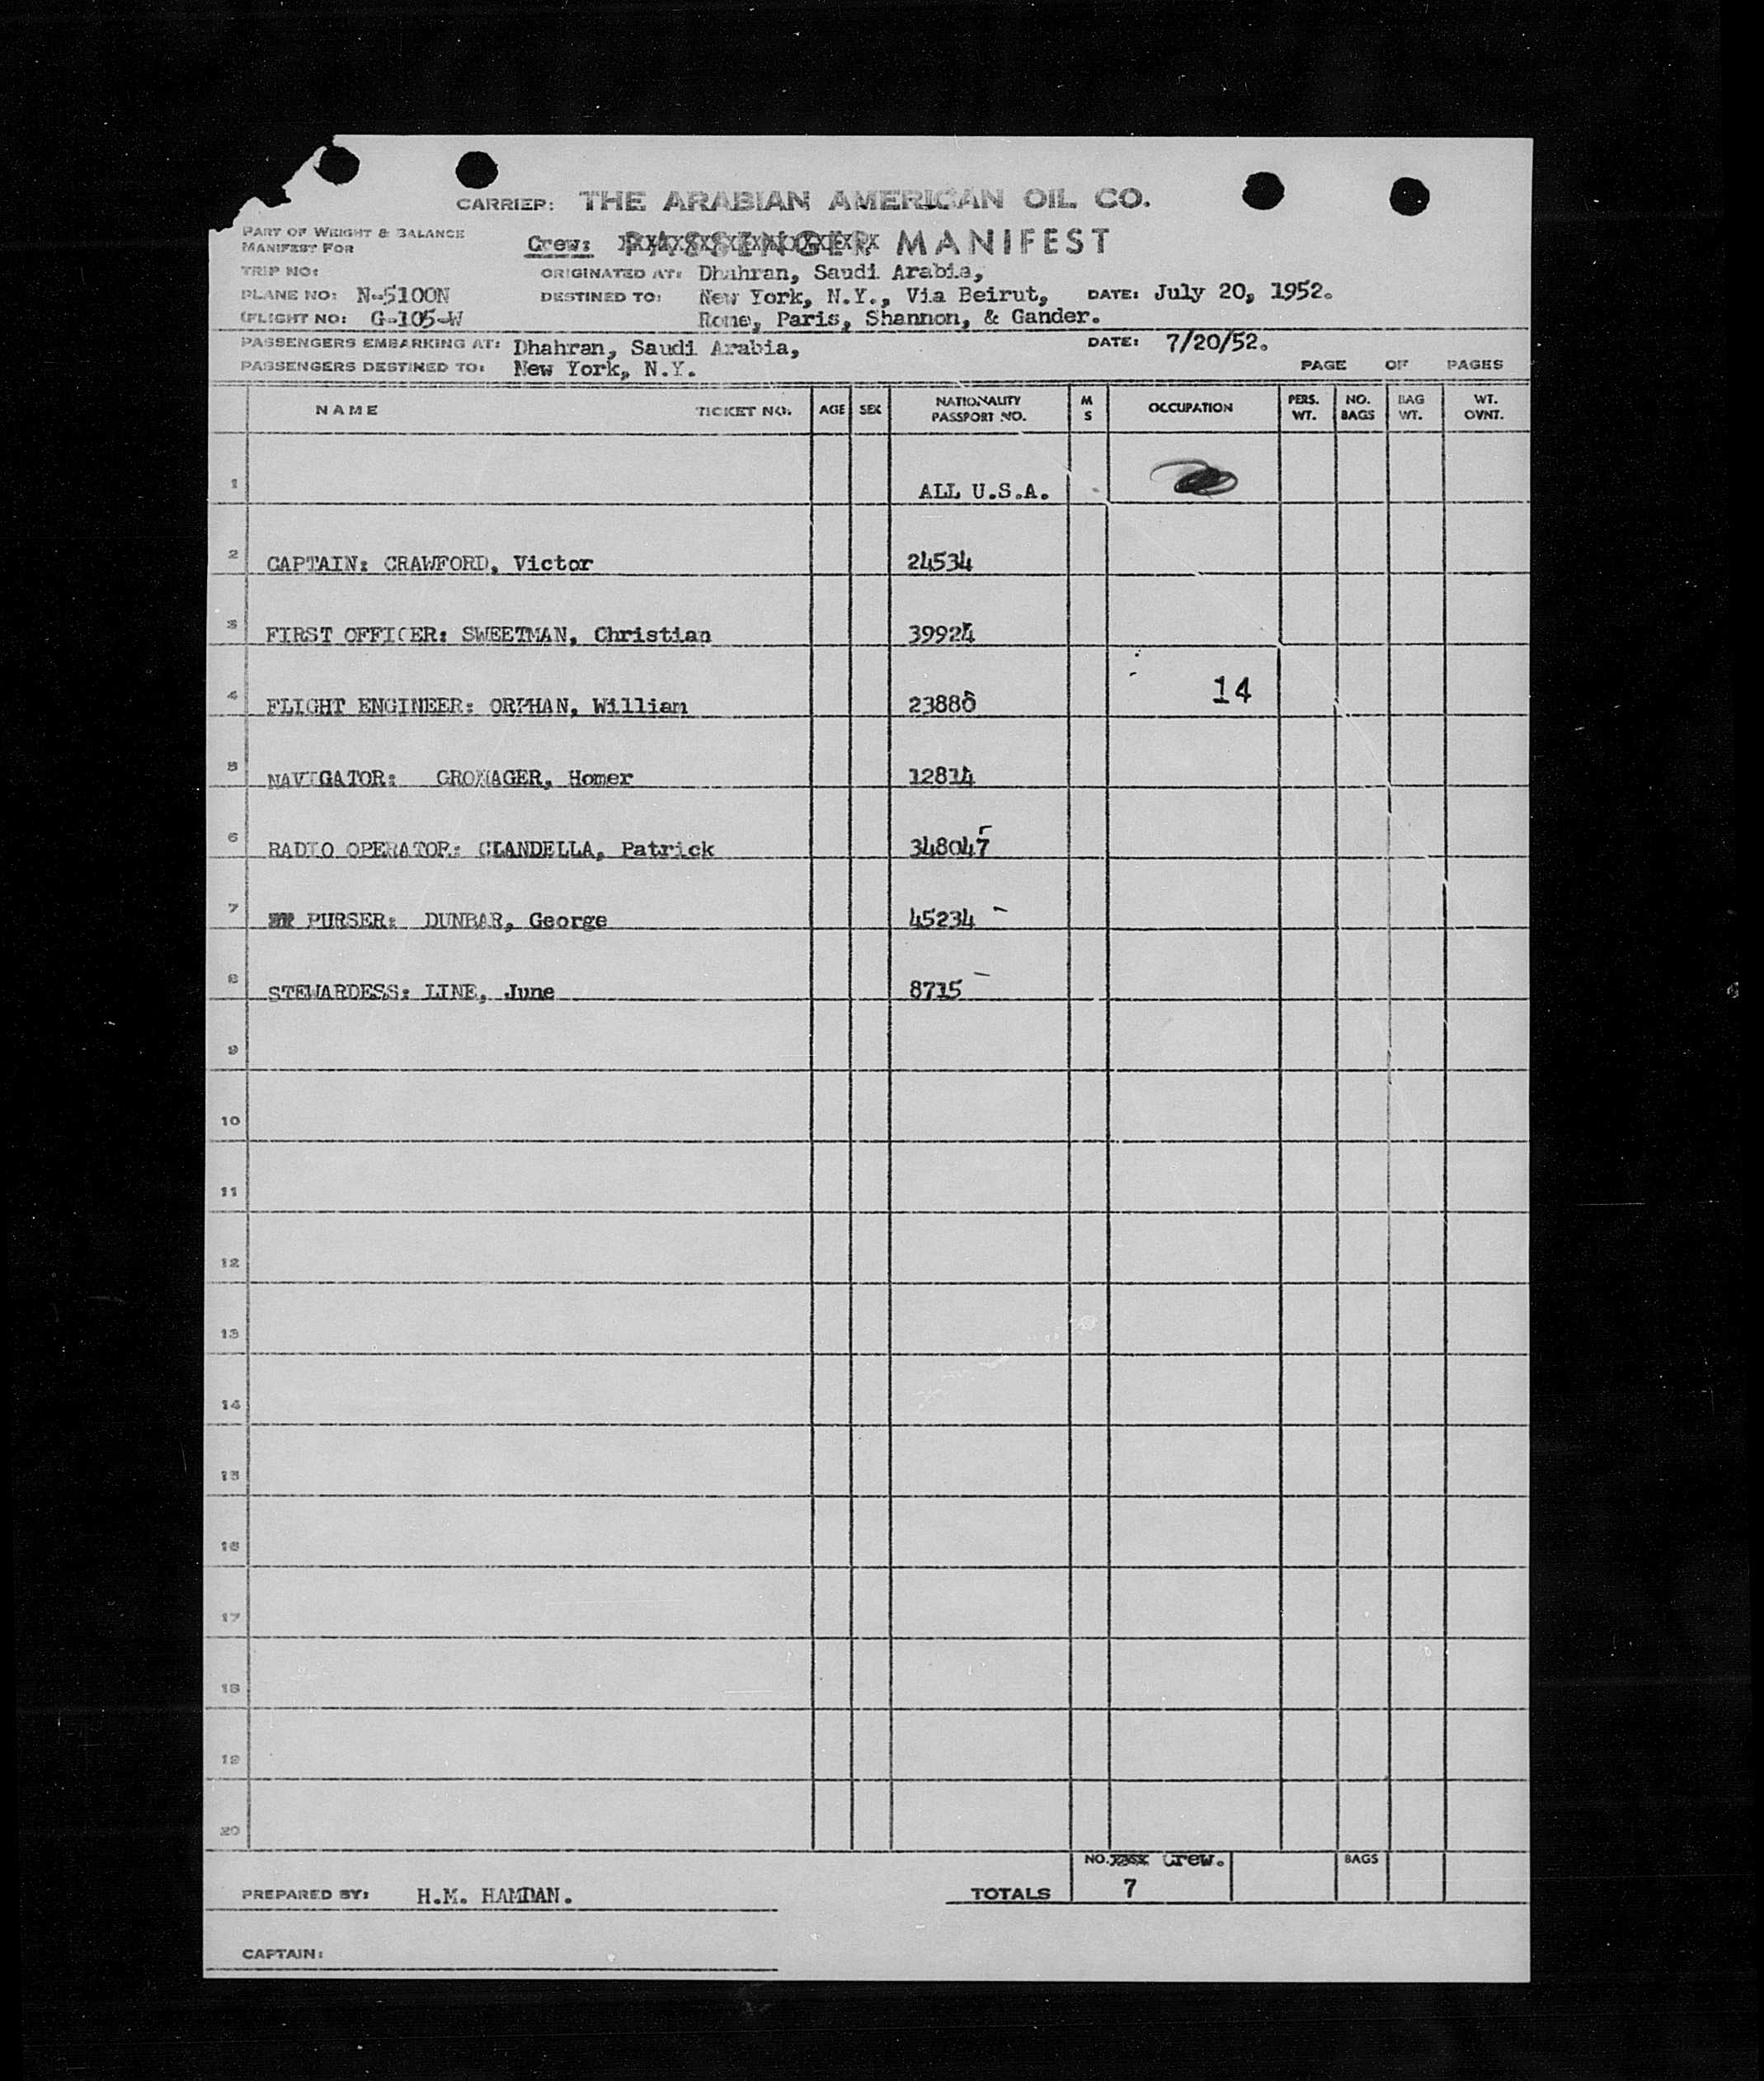 CARRIER: THE ARABIAN AMERICAN OIL CO.
PART OF WEIGHT & BALANCE
MANIFEST FOR
Crew: PASSENGER MANIFEST
TRIP NO:
ORIGINATED AT: Dhahran, Saudi Arabia,
PLANE NO: N-5100N
DESTINED TO: New York, N.Y., Via Beirut, DATE: July 20, 1952.
FLIGHT NO: G-105-W
Rome, Paris, Shannon, & Gander.
PASSENGERS EMBARKING AT: Dhahran, Saudi Arabia, DATE: 7/20/52.
PASSENGERS DESTINED TO: New York, N.Y. PAGE OF PAGES
NAME TICKET NO. AGE SEX NATIONALITY PASSPORT NO. M S OCCUPATION PERS. WT. NO. BAGS BAG WT. WT. OVNT.
1 ALL U.S.A.
2 CAPTAIN: CRAWFORD, Victor 24534
3 FIRST OFFICER: SWEETMAN, Christian 39924
4 FLIGHT ENGINEER: ORPHAN, William 23886 14
5 NAVIGATOR: Homer 12814
6 RADIO OPERATOR: CLANDELLA, Patrick 348047
7 PURSER: DUNBAR, George 45234
8 STEWARDESS: LINE, June 8715
9
10
11
12
13
14
15
16
17
18
19
20
NO. Crew. BAGS
PREPARED BY: H.M. HAMDAN. TOTALS 7
CAPTAIN: